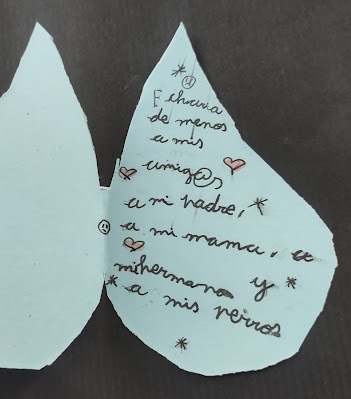 Echaria
de menos
a mis
amig@s
a mi padre,
a mi mama, a
mihermano y
a mis perros